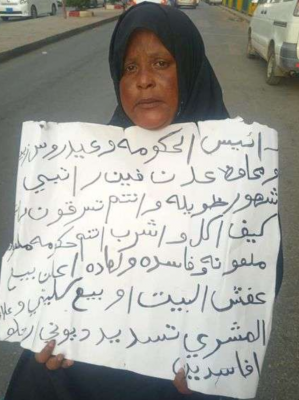 رائيس الحكومه وعيدروس
ومحافظ عدن فين راتبي
شهور طويله وانتم تسرقون
كيف اكل واشرب انتم حكومه
ملعونه وفاسده وكاذه اعلن بيع
عفش البيت او بيع كليتي و
المشري تسديد ديوني
افاسدين